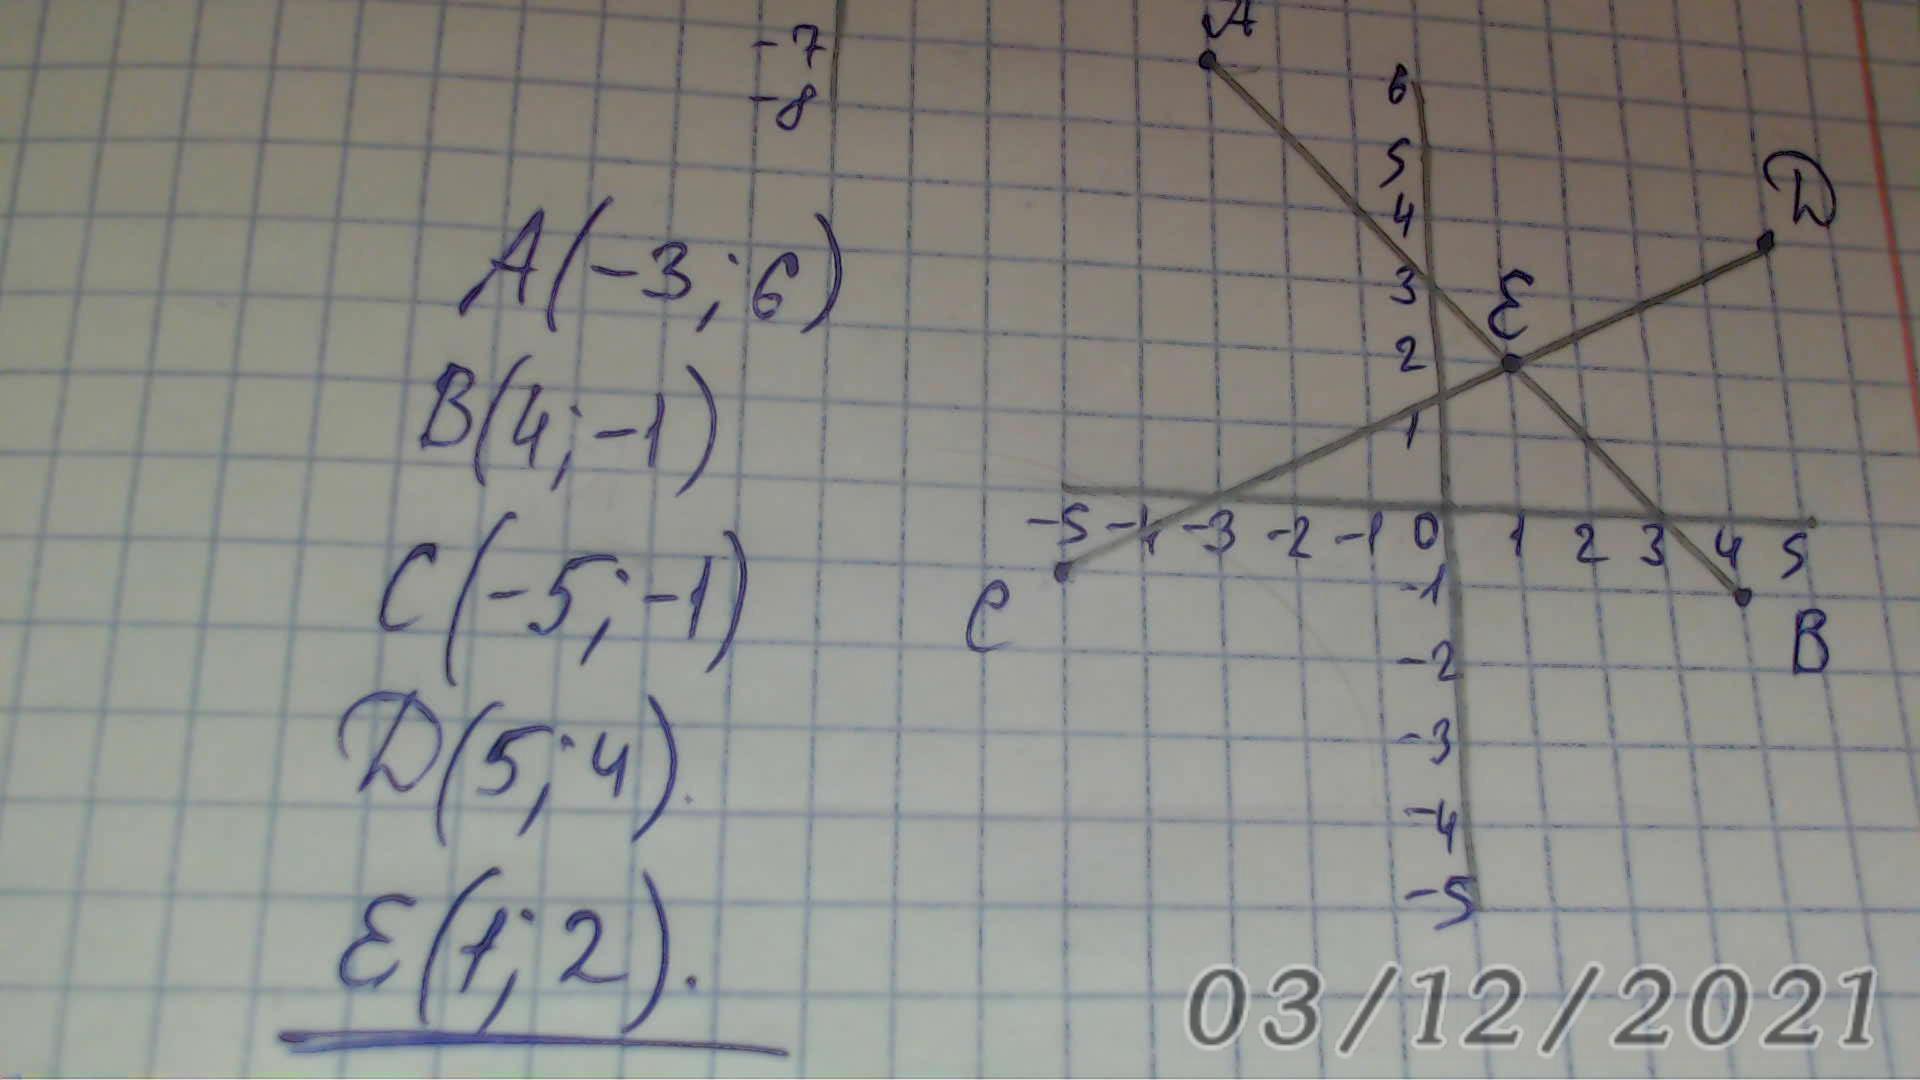 -7
-8
A(-3; 6)
B(4; -1)
C(-5; -1)
D(5; 4).
E(1; 2).
A
6
5
4
3
2
1
D
E
-5 -4 -3 -2 -1 0 1 2 3 4 5
C
B
-1
-2
-3
-4
-5
03/12/2021